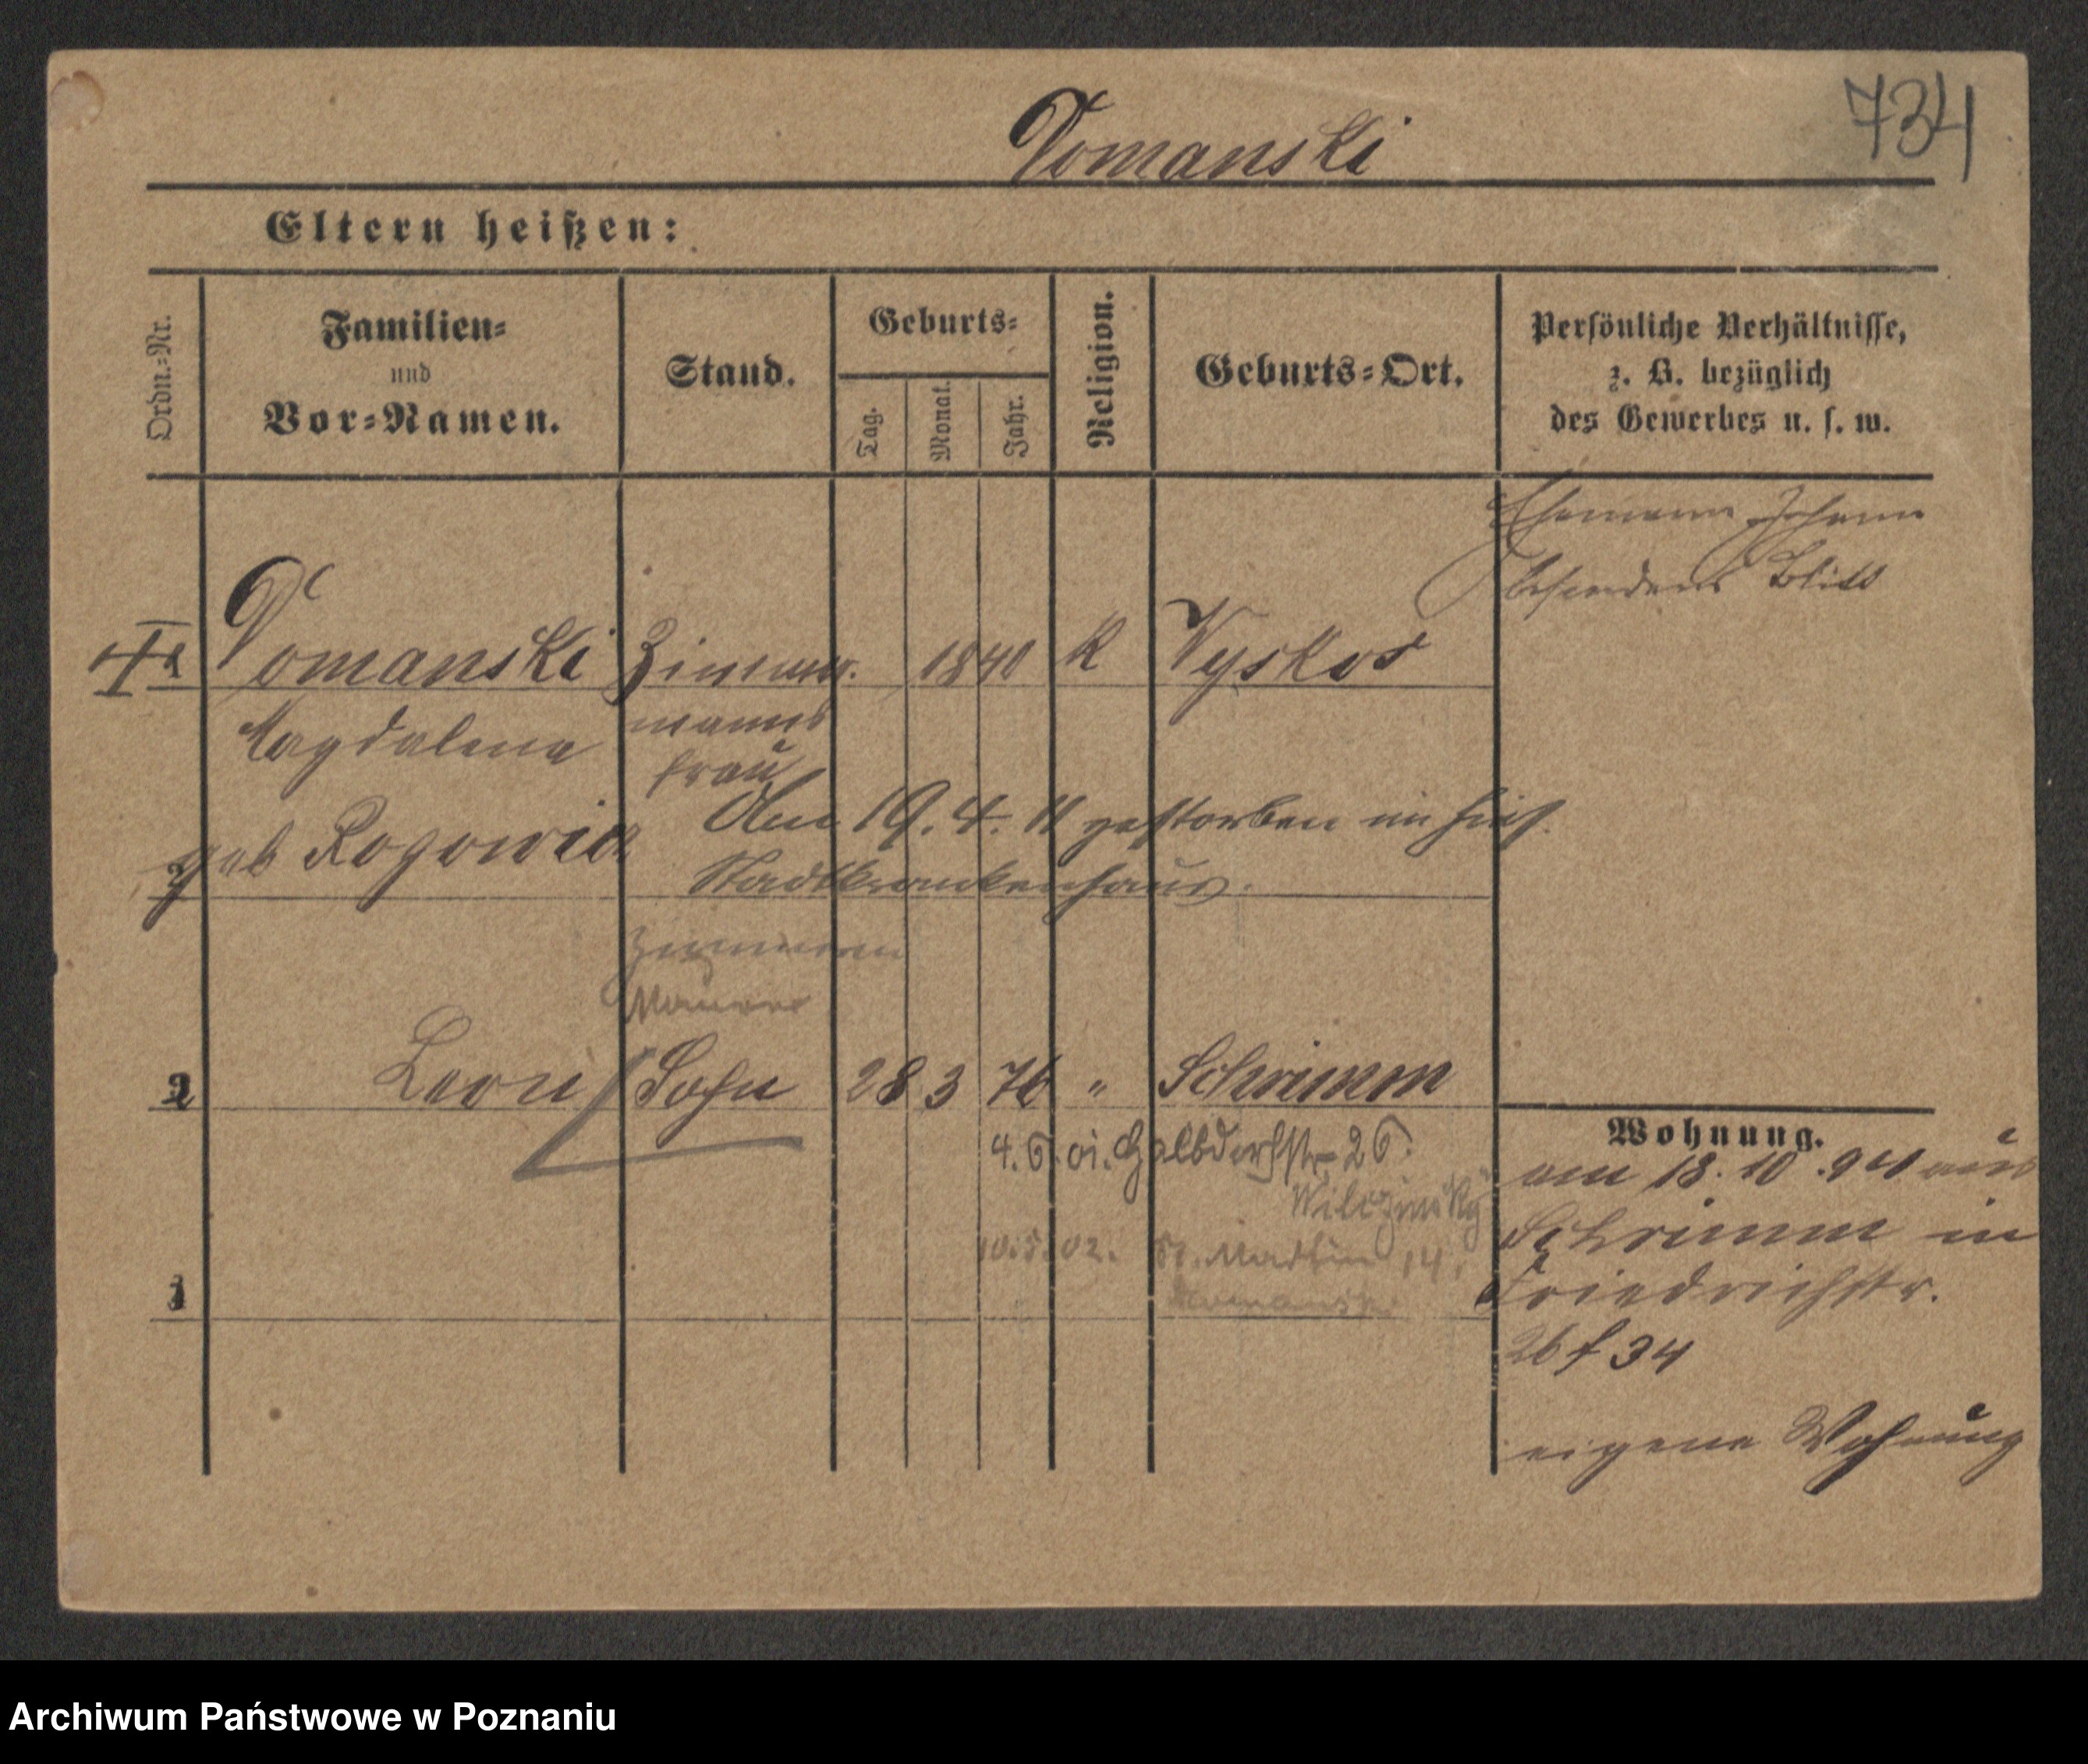 734
Domanski
Eltern heißen:
Ordn.-Nr.
Familien-
und
Vor-Namen.
Stand.
Geburts-
Tag.
Monat.
Jahr.
Religion.
Geburts-Ort.
Persönliche Verhältnisse,
z. B. bezüglich
des Gewerbes u. s. w.
Ehemann Johann
besonderes Blatt
1 Domanski Zimmer. 1840 K Wyskos
Magdalena manns
frau
geb Rogowicz
Am 19. 4. 11 gestorben im hies.
Stadtkrankenhaus.
Maurer
2 Leon Sohn 28 3 76 " Schrimm
4. 6. 01. Halbdorfstr 26.
10.5.02. St. Martin 14.
Domanski
3
Wohnung.
am 18. 10. 94 aus
Schrimm in
Friedrichstr.
26 f 34
eigene Wohnung
Archiwum Państwowe w Poznaniu